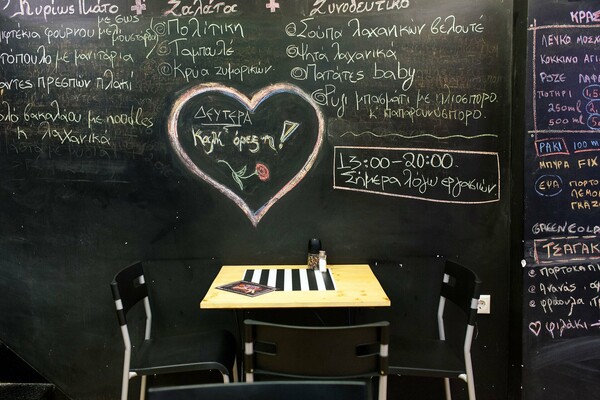 Κυρίως Πιάτο + Σαλάτος + Συνοδευτικό
με εως
φούρνου με μουστάρδα
με μανιτάρια
πρεσπών πλακί
μπακαλιάου με noodles
κ λαχανικά
Πολίτικη
Ταμπουλέ
Κρυα ζυμαρικών
Σούπα λαχανικών βελουτέ
Ψητα λαχανικά
Πατάτες baby
Ρυζι μπασματι με ηλιοσπορο.
κ παπαρουνόσπορο.
ΔΕΥΤΕΡΑ
Καλή όρεξη!
13:00-20:00
Σήμερα λόγω εργασιών
ΚΡΑΣ
ΛΕΥΚΟ ΜΟΣΧ
ΚΟΚΚΙΝΟ ΑΓΙ
ΡΟΖΕ
ΠΟΤΗΡΙ
250ml
500 ml
ΡΑΚΙ 100 m
ΜΠΥΡΑ FIX
ΕΨΑ ΠΟΡΤΟ
ΛΕΜΟ
ΓΚΑΖ
GREEN COLA
ΤΣΑΓΑΚ
πορτοκάλι
Ανανά
φράουλα
φιλάκι